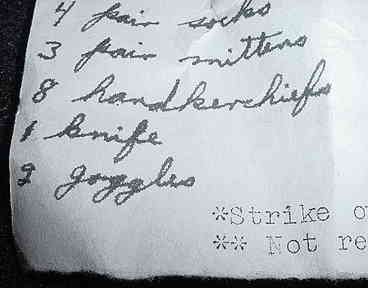 4 pair socks
3 pair mittens
8 handkerchiefs
1 knife
2 goggles
*Strike
** Not